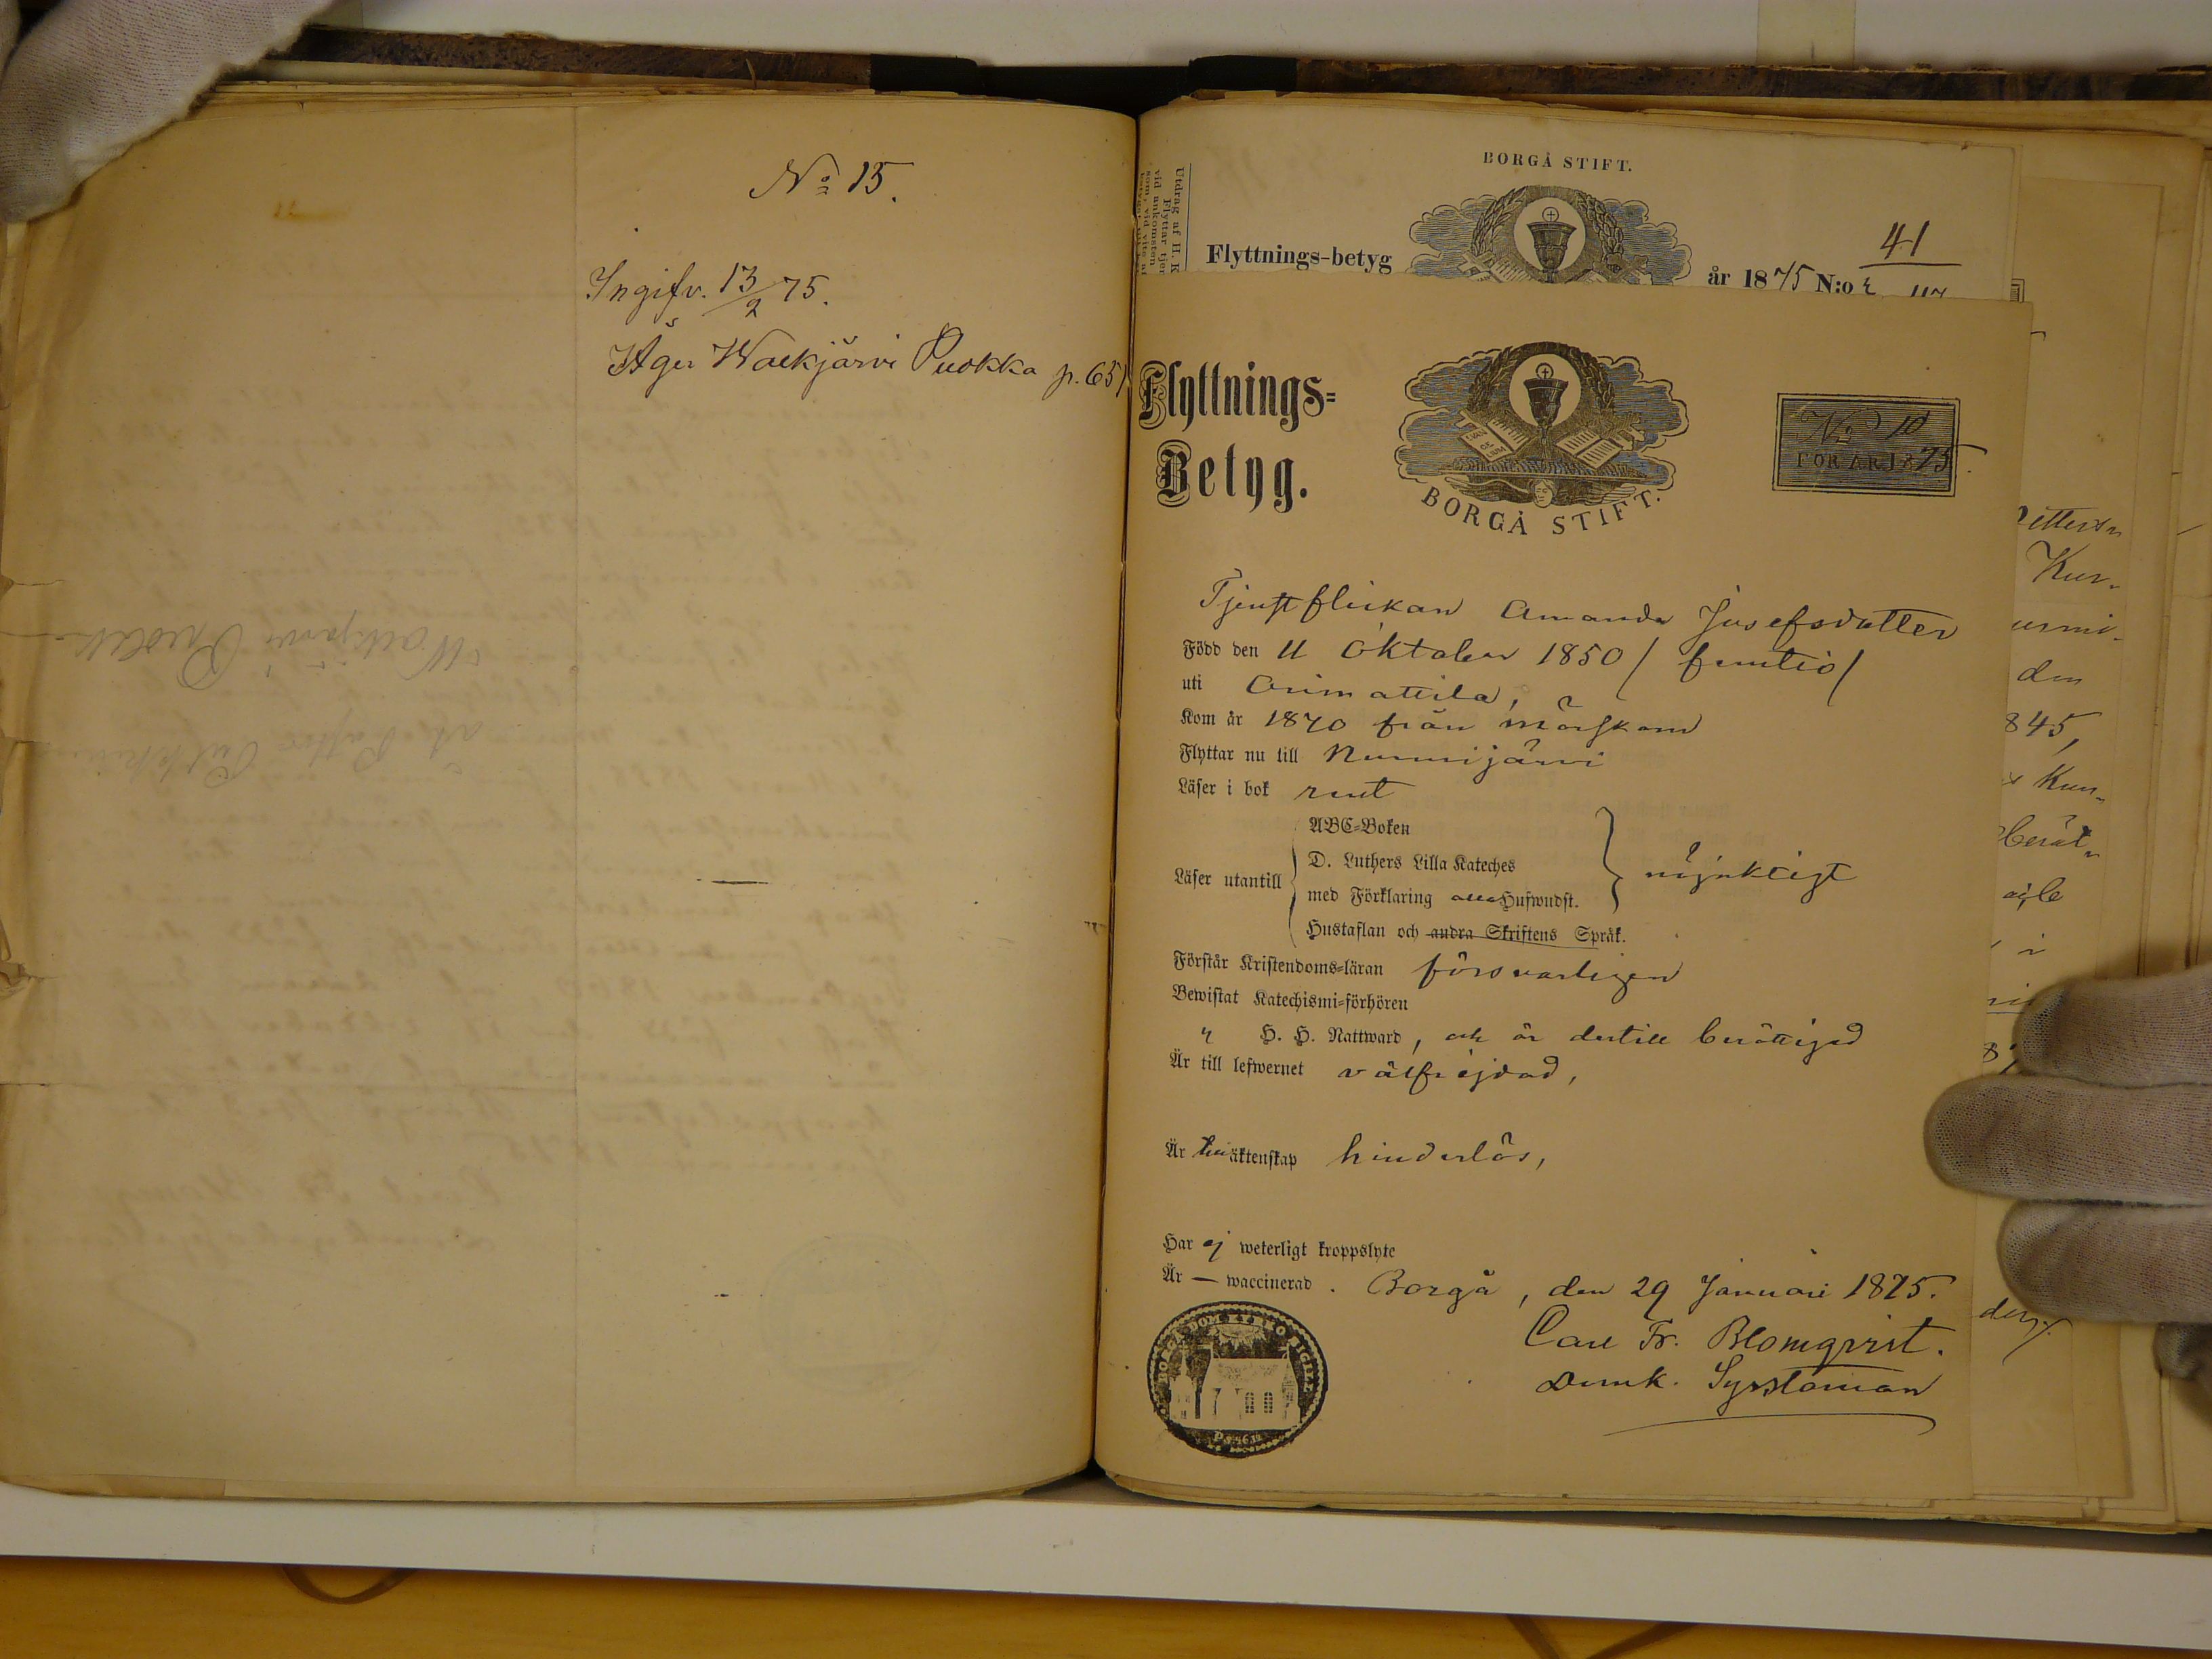 No 15.
Ingifv. 13/2 75.
Äger Waekjärvi Puokka p. 651
BORGÅ STIFT.
Flyttnings-betyg
år 1875 N:o
41
Utdrag af H. K
Flyttar tjen
vid ankomsten
Flyttnings-
Betyg.
BORGÅ STIFT.
No 10
FÖR ÅR 1875.
Tjenstflickan Amanda Josefsdotter
Född den 11 Oktober 1850 / femtio /
uti Orimattila,
Kom år 1870 från Mörskom
Flyttar nu till Nurmijärvi
Läser i bok rent
ABC-Boken
D. Luthers Lilla Kateches
Läser utantill
med Förklaring alla Hufwudst.
nöjaktigt
Hustaflan och andra Skriftens Språk.
Förstår Kristendoms-läran försvarligen
Bewistat Katechismi-förhören
" H. H. Nattward, och är dertill berättigad
Är till lefwernet välfrejdad,
Är till äktenskap hinderlös,
Har ej weterligt kroppslyte
Är — waccinerad. Borgå, den 29 Januari 1875.
Carl Fr. Blomqvist.
Domk. Sysslaman
BORGÅ DOMKYRKO SIGILL
ittersn
Kur-
urmi-
den
845,
Kun-
berät-
i